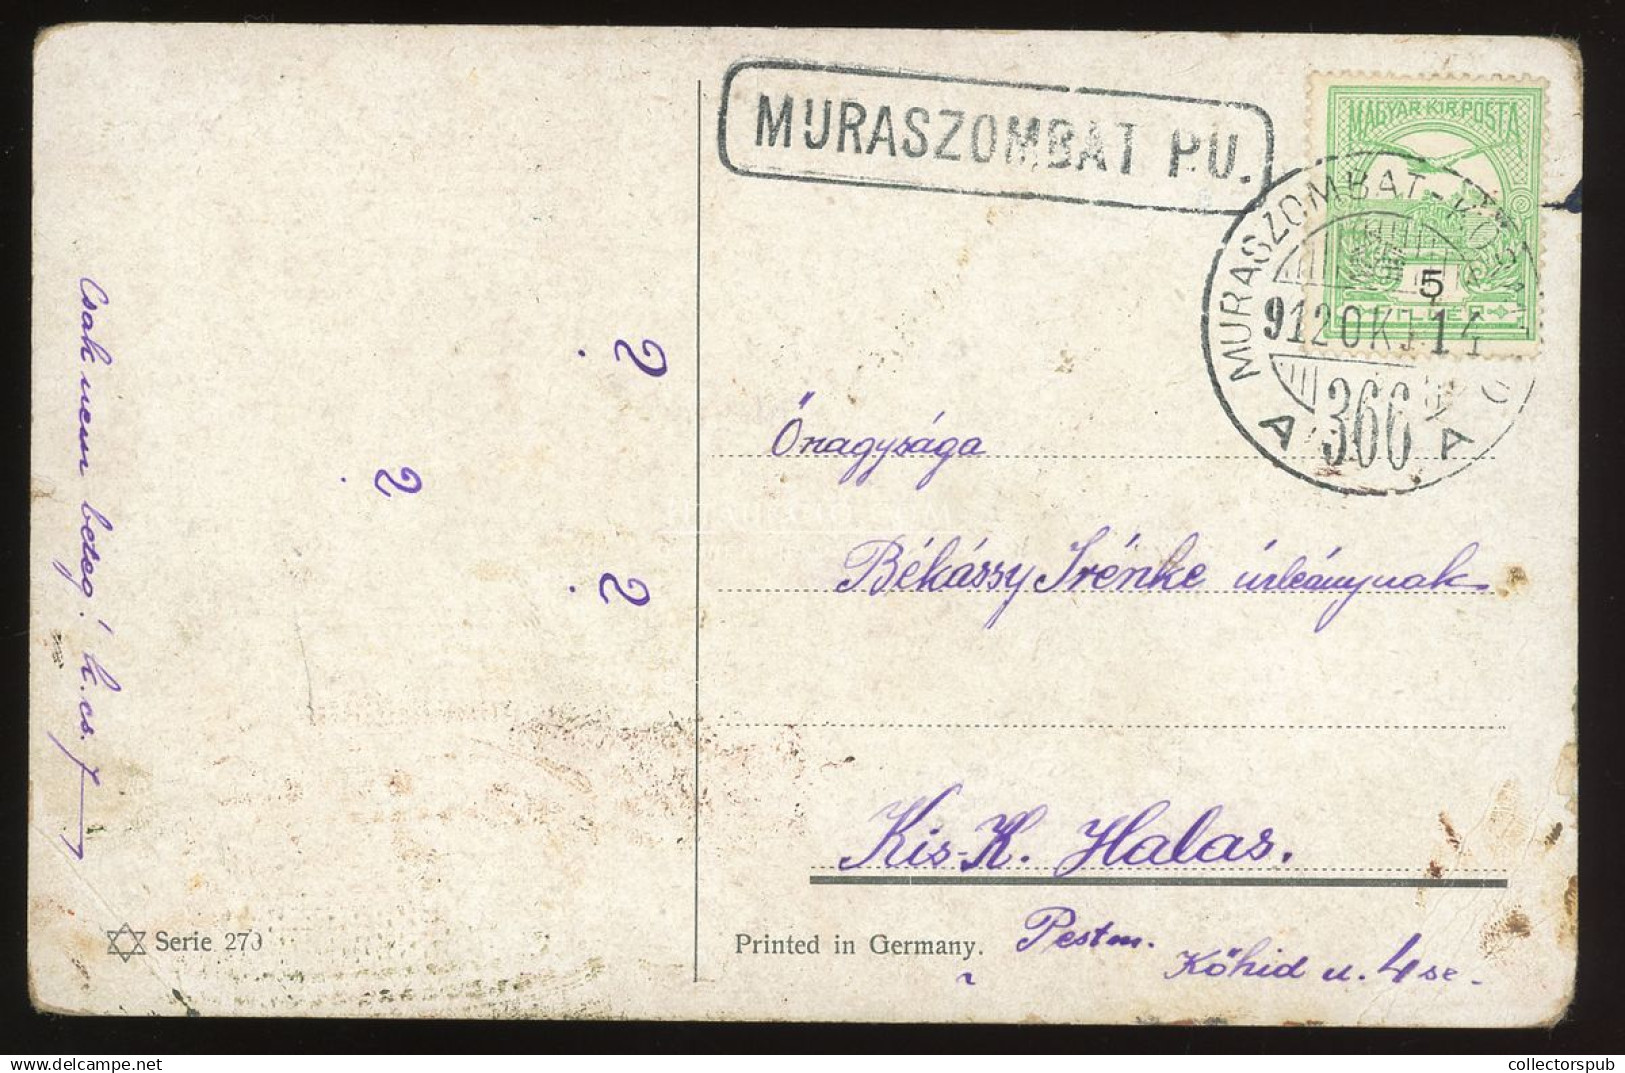 MURASZOMBAT P.U.
MAGYAR·KIR·POSTA
5
FILLÉR
MURASZOMBAT-
912 OKT 14
366
A A
Csak nem beteg! k. cs.
?
?
?
Őnagysága
Békássy Irénke úrleánynak
Kis-K. Halas.
Pestm.
Kőhid u. 4 sz.
Serie 270
Printed in Germany.
collectorspub